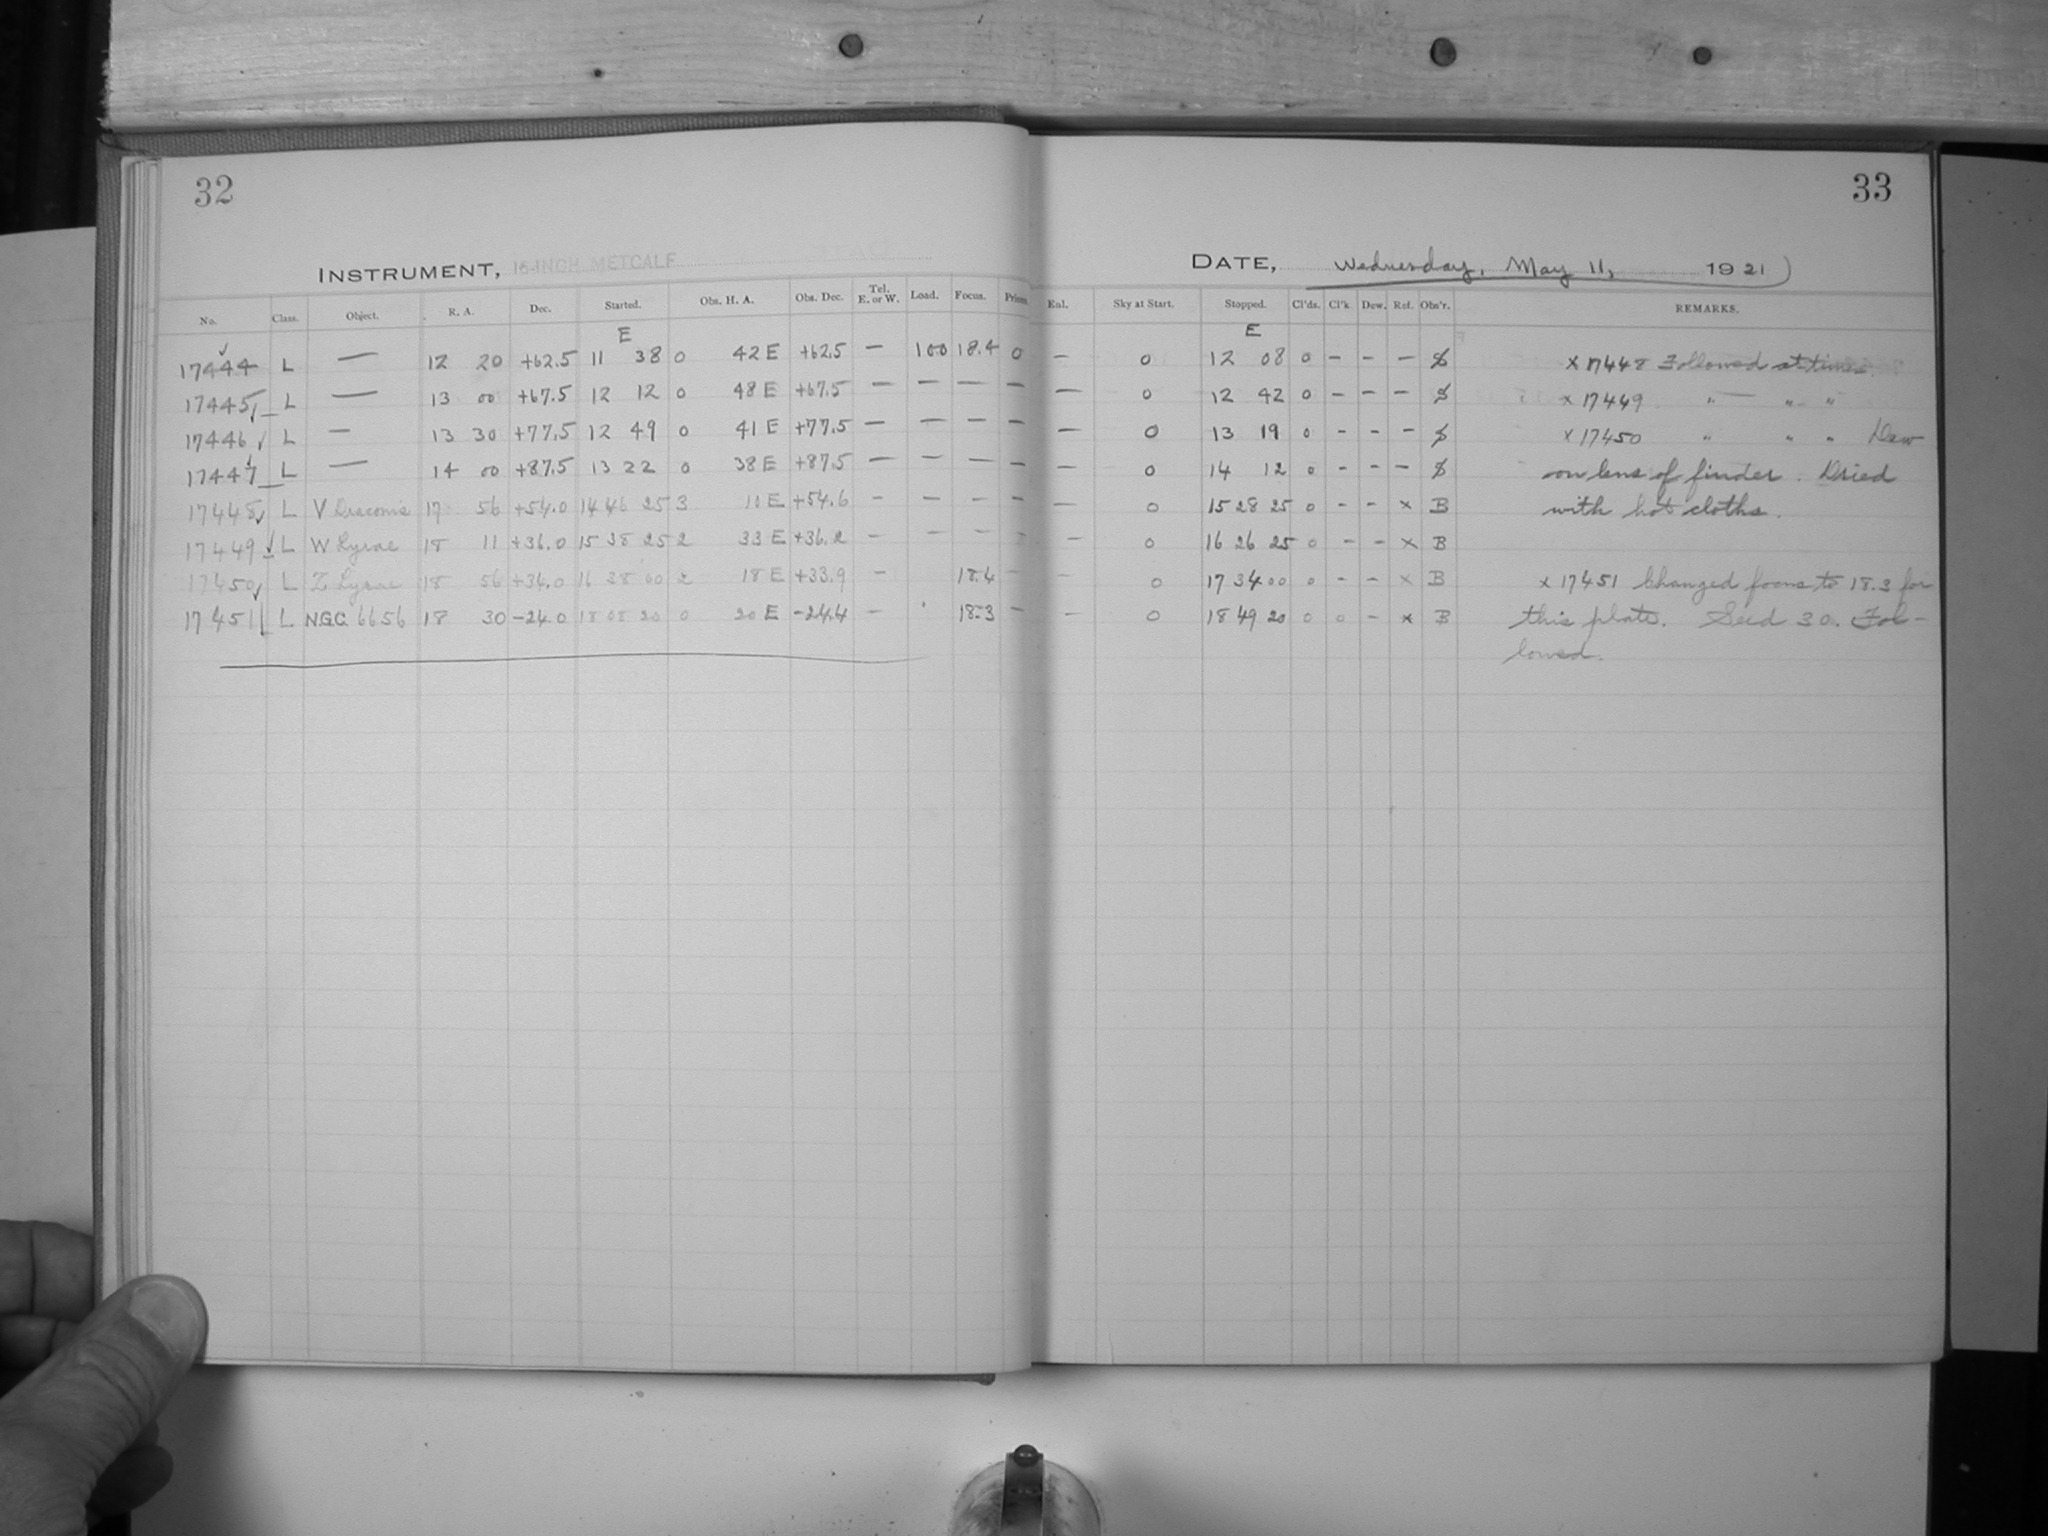 32
33
INSTRUMENT, 16-INCH METCALF
DATE, Wednesday, May 11, 1921
No. Class. Object. R. A. Dec. Started. Obs. H. A. Obs. Dec. Tel. E. or W. Load. Focus. Enl. Sky at Start. Stopped. Cl'ds. Cl'k. Dew. Ref. Obs'r. REMARKS.
E E
17444 L — 12 20 +62.5 11 38 0 42 E +62.5 — 100 18.4 0 — 0 12 08 0 – – – S x 17448 Followed at times.
17445 L — 13 00 +67.5 12 12 0 48 E +67.5 — — — — — 0 12 42 0 – – – S x 17449 " — " "
17446 L — 13 30 +77.5 12 49 0 41 E +77.5 — — — — — 0 13 19 0 – – – S x 17450 " " " Dew
17447 L — 14 00 +87.5 13 22 0 38 E +87.5 — — — — — 0 14 12 0 – – – S on lens of finder. Dried
17448 L V Draconis 17 56 +54.0 14 46 25 3 11 E +54.6 – – – – — 0 15 28 25 0 – – x B with hot cloths.
17449 L W Lyrae 18 11 +36.0 15 38 25 2 33 E +36.2 – – – – 0 16 26 25 0 – – x B
17450 L Z Lyrae 18 56 +34.0 16 38 00 2 18 E +33.9 – 18.4 – – 0 17 34 00 0 – – x B x 17451 Changed focus to 18.3 for
17451 L N.G.C. 6656 18 30 -24.0 18 08 20 0 20 E -24.4 – 18.3 – – 0 18 49 20 0 0 – x B this plate. Seed 30. Fol-
lowed.